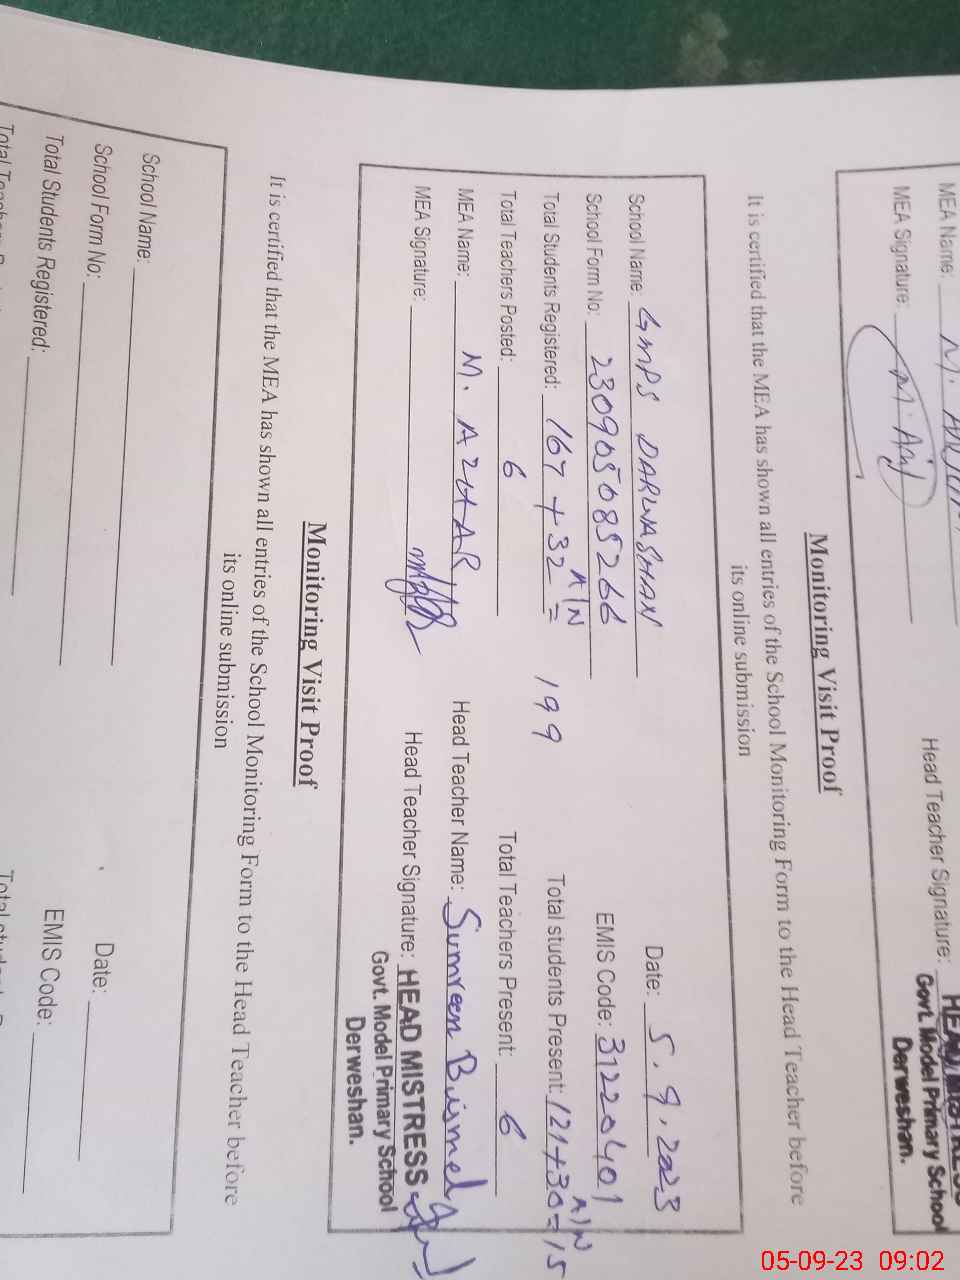 MEA Name: M.
MEA Signature: Head Teacher Signature: HEAD MISTRESS
Govt. Model Primary School
Derweshan.
Monitoring Visit Proof
It is certified that the MEA has shown all entries of the School Monitoring Form to the Head Teacher before
its online submission
School Name: GMPS DARWASHAN Date: 5.9.2023
School Form No: 230905085266 EMIS Code: 31220401
Total Students Registered: 167 + 32 A/N = 199 Total students Present: 121+30 A/N =15
Total Teachers Posted: 6 Total Teachers Present: 6
MEA Name: M. AZHAR Head Teacher Name: Sumreen Bismel
MEA Signature: Head Teacher Signature: HEAD MISTRESS
Govt. Model Primary School
Derweshan.
Monitoring Visit Proof
It is certified that the MEA has shown all entries of the School Monitoring Form to the Head Teacher before
its online submission
School Name: Date:
School Form No: EMIS Code:
Total Students Registered: Total
05-09-23 09:02